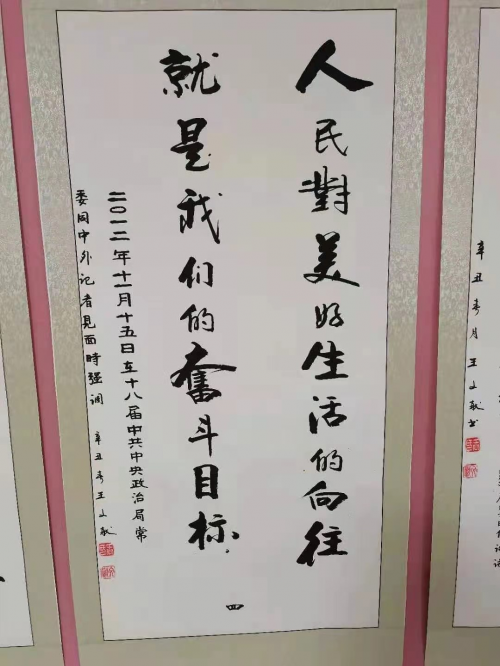 辛丑春月王文献书
人民對美好生活的向往
就是我们的奮斗目标
二〇一二年十一月十五日在十八届中共中央政治局常
委同中外记者見面時强调 辛丑春王文献
四